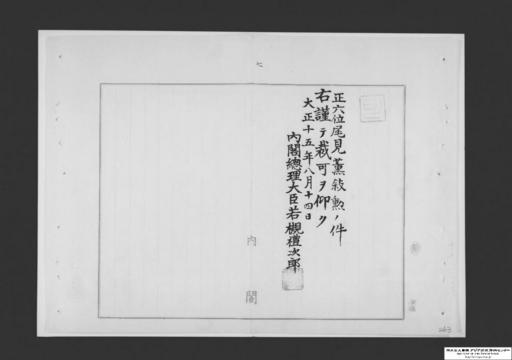 正六位尾見薫敍勲ノ件
右謹テ裁可ヲ仰ク
大正十五年八月十四日
内閣總理大臣若槻禮次郎
内閣
七